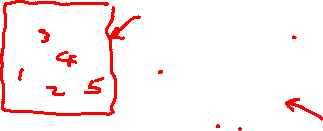 3
4
1 2 5